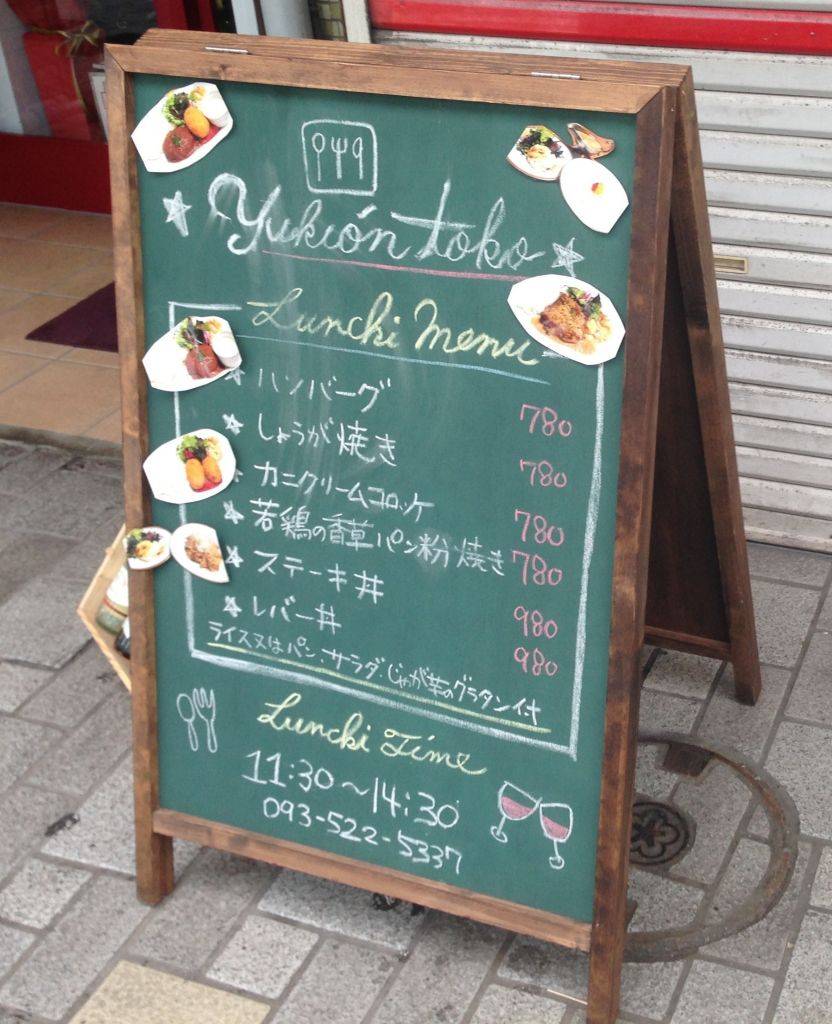 Yukión toko
Lunchi Menu
ハンバーグ 780
しょうが焼き 780
カニクリームコロッケ 780
若鶏の香草パン粉焼き 780
ステーキ丼 980
レバー丼 980
ライス又はパン、サラダ、じゃが芋のグラタン付
Lunchi Time
11:30～14:30
093-522-5337